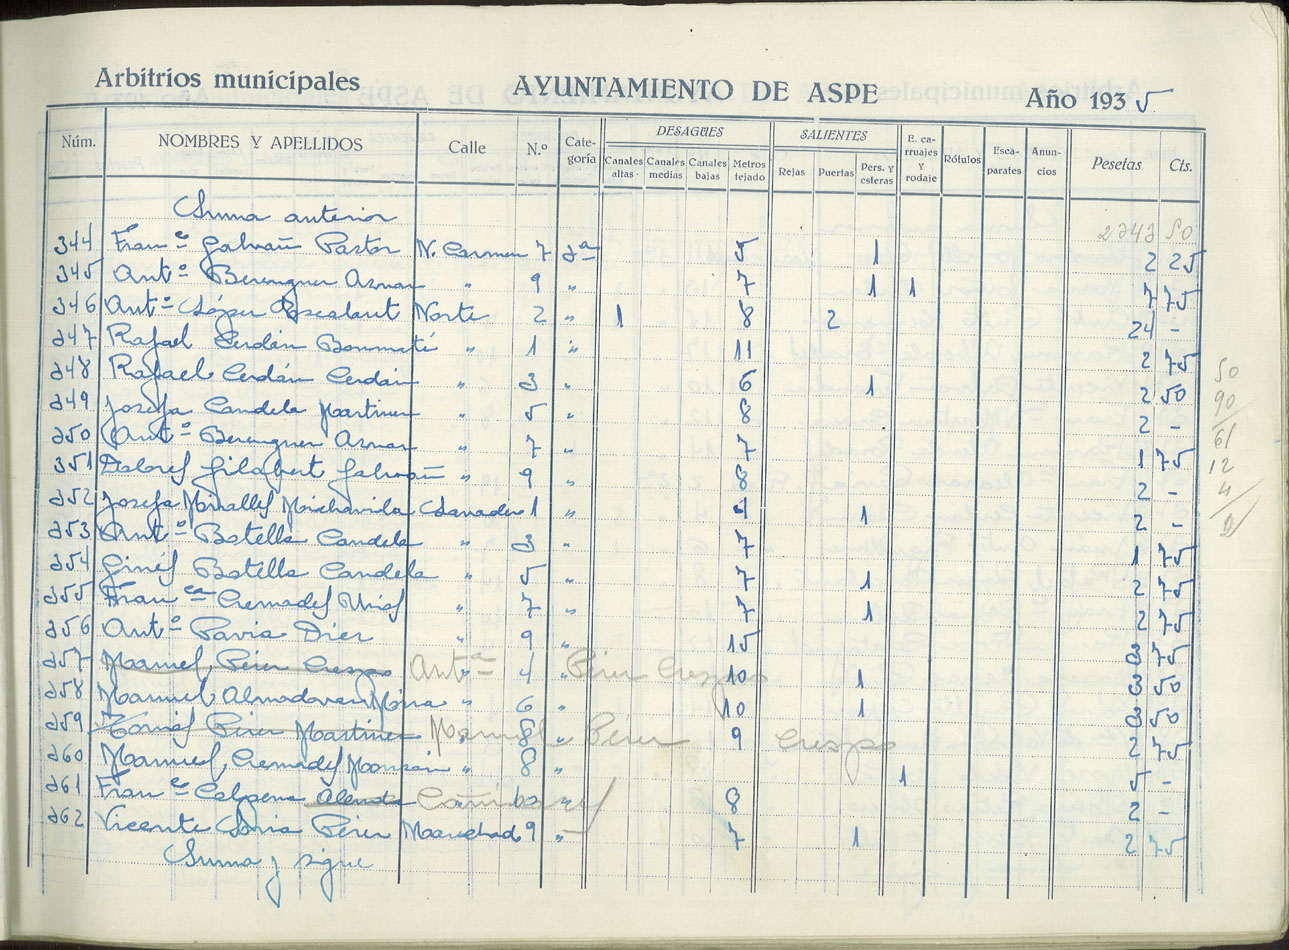 Arbitrios municipales AYUNTAMIENTO DE ASPE Año 1935
DESAGÜES SALIENTES
Núm. NOMBRES Y APELLIDOS Calle N.º Cate-goría Canales altas Canales medias Canales bajas Metros tejado Rejas Puertas Pers. y esteras E. ca-rruajes y rodaje Rótulos Esca-parates Anun-cios Pesetas Cts.
Suma anterior 2343 50
344 Franco Galvañ Pastor N. Carmen 7 3a 5 1 2 25
345 Anto Berenguer Aznar " 9 " 7 1 1 7 75
346 Anto López Escolant Norte 2 " 1 8 2 24
347 Rafael Cerdán Bonmatí " 1 " 11 2 75
348 Rafael Cerdán Cerdán " 3 " 6 1 2 50
349 Josefa Candela Martinez " 5 " 8 2 -
350 Anto Berenguer Aznar " 7 " 7 1 75
351 Dolores Gilabert Galvañ " 9 " 8 2 -
352 Josefa Miralles Michavila 1 " 4 1 2 -
353 Anto Botella Candela " 3 " 7 1 75
354 Ginés Botella Candela " 5 " 7 1 2 75
355 Franca Cremades Urios " 7 " 7 1 2 75
356 Anto Pavia Dier " 9 " 15 3 75
357 Manuel Pérez Crespo Anta Pérez Crespo " 4 " 10 1 3 50
358 Manuel Almodovar Mira " 6 " 10 1 3 50
359 Tomás Pérez Martinez Manuel Pérez Crespo " 8 " 9 2 75
360 Manuel Cremades " 8 " 1 5 -
361 Franco Calpena Cañizares 8 2 -
362 Vicente Soria Pérez 9 " 7 1 2 75
Suma y sigue
50
90
61
12
4
2